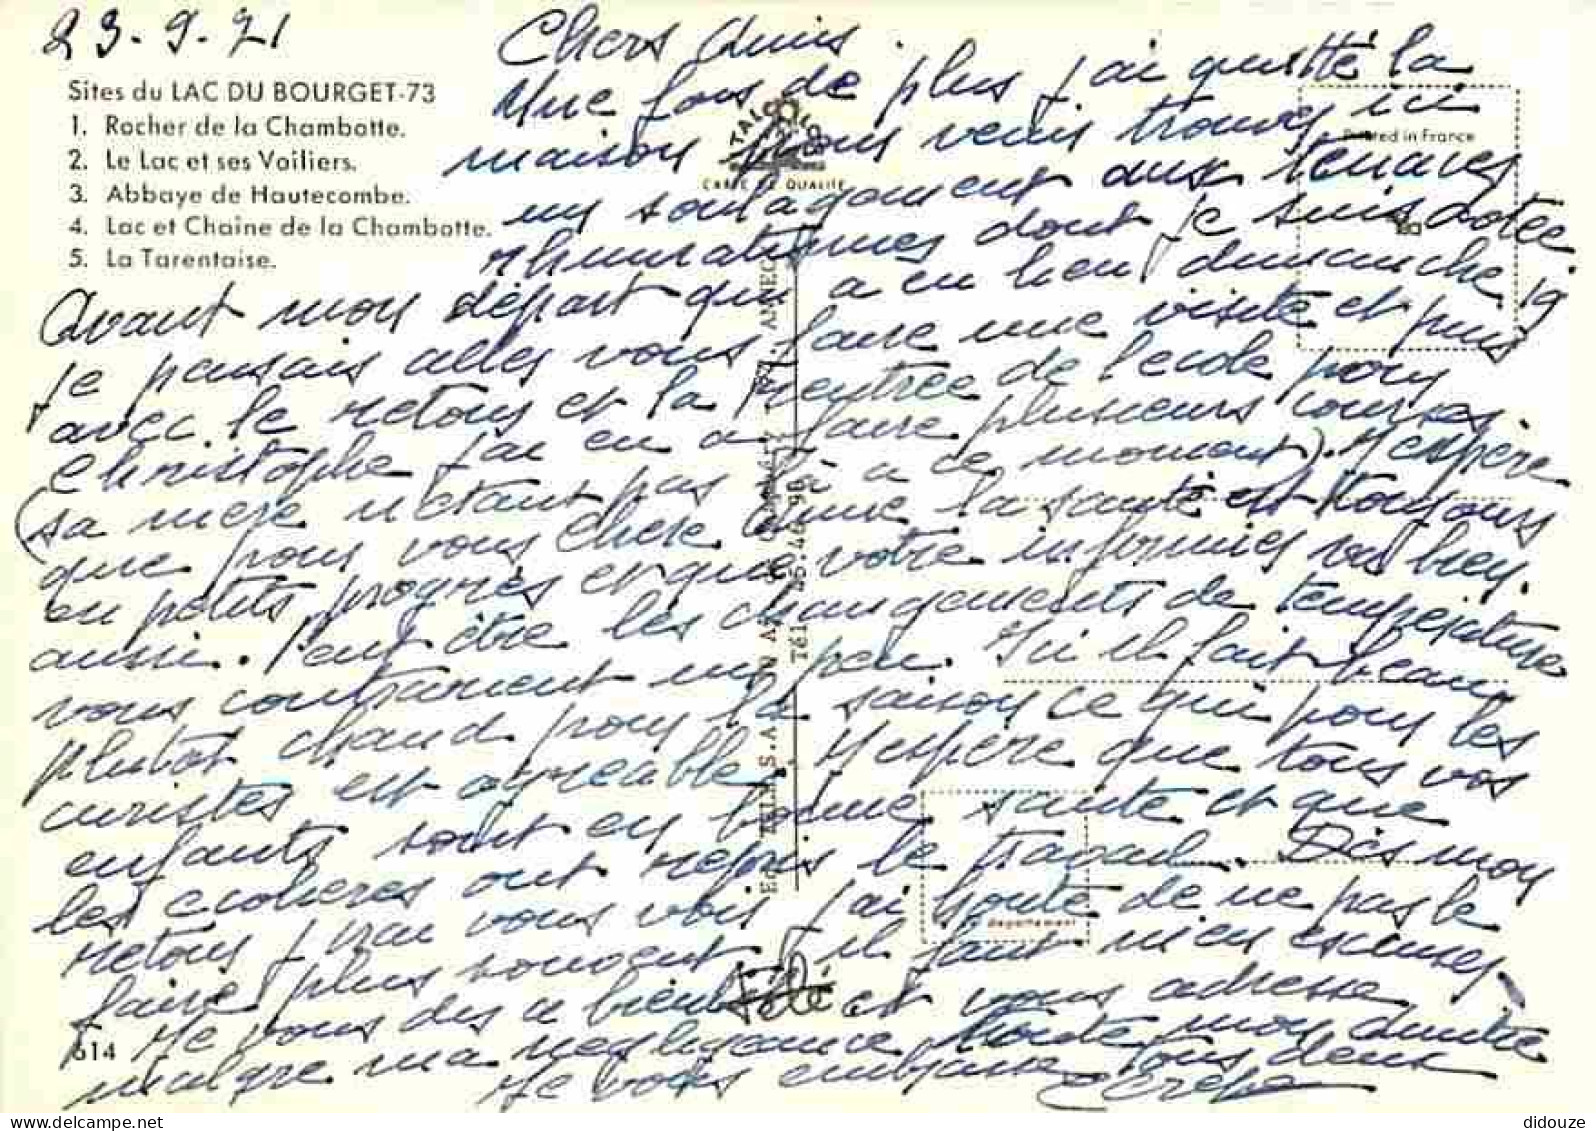 23-9-71
Sites du LAC DU BOURGET-73
1. Rocher de la Chambotte.
2. Le Lac et ses Voiliers.
3. Abbaye de Hautecombe.
4. Lac et Chaîne de la Chambotte.
5. La Tarentaise.
CARTE DE QUALITÉ
Printed in France
Chers Amis
Une fois de plus j'ai quitté la
maison pour venir trouver ici
un soulagement aux tenaces
rhumatismes dont je suis dotée
Avant mon départ qui a eu lieu dimanche 19
je pensais aller vous faire une visite et puis
avec le retour et la rentrée de l'école pour
Christophe j'ai eu à faire plusieurs courses
(sa mère n'étant pas là à ce moment). J'espère
que pour vous chère amie la santé est toujours
en petits progrès et que votre infirmier va bien
aussi. Peut être les changements de température
vous contrarient un peu. Ici il fait beau
plutôt chaud pour la saison ce qui pour les
curistes est agréable. J'espère que tous vos
enfants sont en bonne santé et que
les écolières ont repris le travail. Dès mon
retour j'irai vous voir j'ai honte de ne pas le
faire plus souvent il faut m'en excuser
Je vous dis à bientôt et vous adresse
malgré ma négligence toute mon amitié
Je vous embrasse tous deux
département
614
didouze